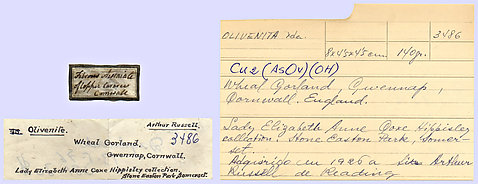 Fibrous Arseniate
of Copper
Cornwall
Olivenite.
Arthur Russell
3486
Wheal Gorland,
Gwennap, Cornwall.
Lady Elizabeth Anne Coxe Hippisley collection.
Stone Easton Park, Somerset.
OLIVENITA
3486
8x45x45cm. 140gr.
Cu2(AsO4)(OH)
Wheal Gorland, Gwennap,
Cornwall, England.
Lady Elizabeth Anne Coxe Hippisley
collection. Stone Easton Park, Somer-
set.
Adquirido en 1926 a Sir Arthur
Russell de Reading